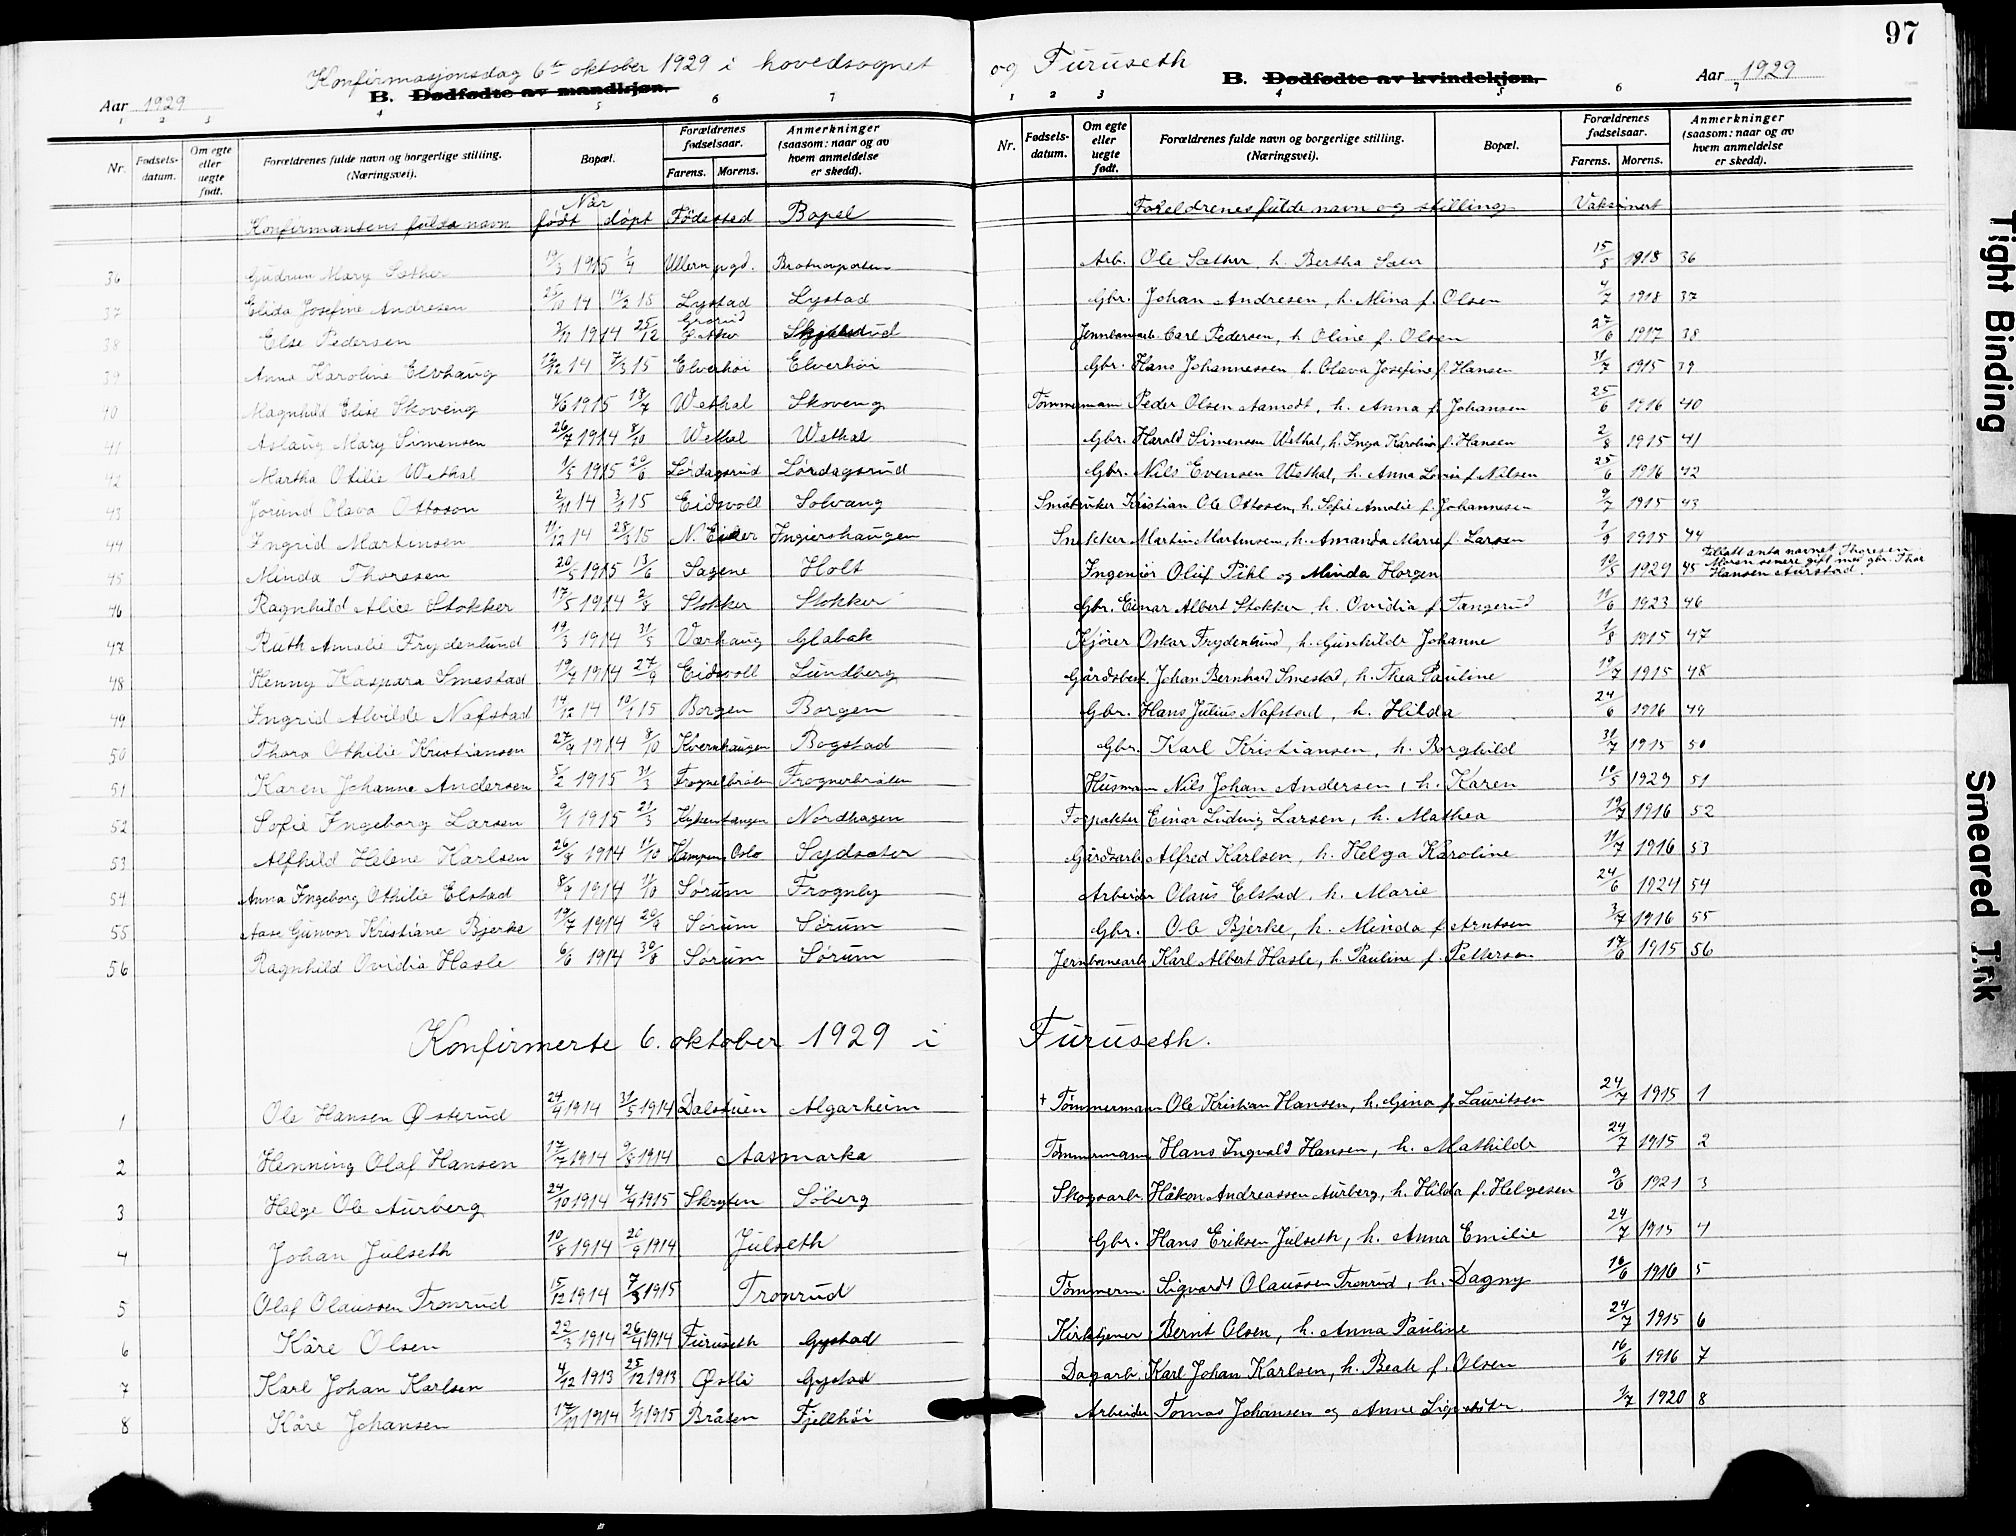 97
Konfirmasjonsdag 6te oktober 1929 i hovedsognet og Furuseth
Aar 1929 B. Dødfødte av mandkjøn.
B. Dødfødte av kvindekjøn. Aar 1929
1 2 3 4 5 6 7
1 2 3 4 5 6 7
Nr. Fødsels-datum. Om egte eller uegte født. Forældrenes fulde navn og borgerlige stilling. (Næringsvei). Bopæl. Forældrenes fødselsaar. Farens. Morens. Anmerkninger (saasom: naar og av hvem anmeldelse er skedd).
Nr. Fødsels-datum. Om egte eller uegte født. Forældrenes fulde navn og borgerlige stilling. (Næringsvei). Bopæl. Forældrenes fødselsaar. Farens. Morens. Anmerkninger (saasom: naar og av hvem anmeldelse er skedd).
Konfirmantens fulde navn Når født døpt Fødested Bopel Foreldrenes fulde navn og stilling Vaksinert
36 Gudrun Mary Sæther 19/3 1915 1/4 Ullern pgd. Arb. Ole Sæther, h. Bertha 15/5 1918 36
37 Elida Josefine Andresen 25/10 14 14/2 15 Lystad Lystad Gbr. Johan Andresen, h. Mina f. Olsen 4/7 1918 37
38 Else Pedersen 3/11 1914 25/12 Grorud Ø. Aker Jernbanearb. Carl Pedersen, h. Oline f. Olsen 27/6 1917 38
39 Anna Karoline Elvhaug 12/12 14 7/3 15 Elverhøi Elverhøi Gbr. Hans Johannessen h. Olava Josefine f. Hansen 31/7 1915 39
40 Magnhild Elise Skoveng 4/6 1915 18/7 Wethal Skoveng Tømmermann Peder Olsen Aamodt, h. Anna f. Johansen 25/6 1916 40
41 Aslaug Mary Simensen 26/7 1914 8/10 Wethal Wethal Gbr. Harald Simensen Wethal, h. Inga Karoline f. Hansen 2/8 1915 41
42 Martha Otilie Wethal 1/5 1915 20/6 Lørdagsrud Lørdagsrud Gbr. Nils Evensen Wethal, h. Anna Lovise f. Nilsen 25/6 1916 42
43 Jorund Olava Ottoson 2/11 14 3/1 15 Eidsvoll Solvang Småbruker Kristian Ole Ottosen, h. Sofie Amalie f. Johannesen 9/7 1915 43
44 Ingrid Martinsen 11/12 14 28/3 15 N. Eidker Ingiershaugen Snekker Martin Martinsen, h. Amanda Marie f. Larsen 1/8 1915 44
45 Minda Thoresen 20/5 1915 13/6 Sagene Holt Ingeniør Oluf Pihl og Minda Horgen 10/5 1929 45 Tillatt anta navnet Thoresen. Moren senere gift med gbr. Thor Hansen Aurstad.
46 Ragnhild Alice Stokker 17/5 1914 2/8 Stokker Stokker Gbr. Einar Albert Stokker, h. Ovidia f. Tangerud 19/6 1923 46
47 Ruth Amalie Frydenlund 19/3 1914 31/5 Værhaug Glabak Kjører Oskar Frydenlund, h. Gunhilde Johanne 1/8 1915 47
48 Henny Kaspara Smestad 19/7 1914 27/9 Eidsvoll Lundberg Gårdsbest. Johan Bernhard Smestad, h. Thea Pauline 19/7 1915 48
49 Ingrid Alvilde Nafstad 14/12 14 10/1 15 Borgen Borgen Gbr. Hans Julius Nafstad, h. Hilda 24/6 1916 49
50 Thora Othilie Kristiansen 27/9 1914 8/10 Kvernhaugen Bogstad Gbr. Karl Kristiansen, h. Borghild 31/7 1915 50
51 Karen Johanne Andersen 5/2 1915 31/3 Frognerbråten Frognerbråten Husmann Nils Johan Andersen, h. Karen 10/5 1929 51
52 Sofie Ingeborg Larsen 9/1 1915 21/3 Nordhagen Forpakter Einar Ludvig Larsen, h. Mathea 19/7 1916 52
53 Alfhild Helene Karlsen 26/8 1914 11/10 Kampen, Oslo Sydsæter Gårdsarb. Alfred Karlsen, h. Helga Karoline 11/7 1916 53
54 Anna Ingeborg Othilie Elstad 8/9 1914 11/10 Sørum Frognby Arbeider Olaus Elstad, h. Marie 24/6 1924 54
55 Aase Gunvor Kristiane Bjerke 19/7 1914 20/9 Sørum Sørum Gbr. Ole Bjerke, h. Minda f. Arntsen 3/7 1916 55
56 Ragnhild Ovidia Hasle 6/6 1914 30/8 Sørum Sørum Jernbanearb. Karl Albert Hasle, h. Pauline f. Pettersen 17/6 1915 56
Konfirmerte 6. oktober 1929 i Furuseth.
1 Ole Hansen Østerud 24/4 1914 31/5 1914 Dalstuen Algarheim + Tømmermann Ole Kristian Hansen, h. Gina f. Lauritsen 24/7 1915 1
2 Henning Olaf Hansen 17/7 1914 9/8 1914 Aasmarka Tømmermann Hans Ingvald Hansen, h. Mathilde 24/7 1915 2
3 Helge Ole Aurberg 24/10 1914 4/4 1915 Skryten Søberg Skogsarb. Håkon Andreassen Aurberg, h. Hilda f. Helgesen 9/6 1921 3
4 Johan Julseth 10/8 1914 20/9 1914 Julseth Gbr. Hans Eriksen Julseth, h. Anna Emilie 24/7 1915 4
5 Olaf Olaussen Tronrud 15/12 1914 7/3 1915 Tronrud Tømmerm. Sigvardt Olaussen Tronrud, h. Dagny 16/6 1916 5
6 Kåre Olsen 22/3 1914 26/4 1914 Furuseth Gystad Kirketjener Bernt Olsen, h. Anna Pauline 24/7 1915 6
7 Karl Johan Karlsen 4/12 1913 25/12 1913 Østli Gystad Dagarb. Karl Johan Karlsen, h. Beate f. Olsen 16/6 1916 7
8 Kåre Johansen 17/11 1914 1/1 1915 Bråten Fjellhøi Arbeider Tomas Johansen og Anne 3/7 1920 8
Tight Binding
Smeared Ink